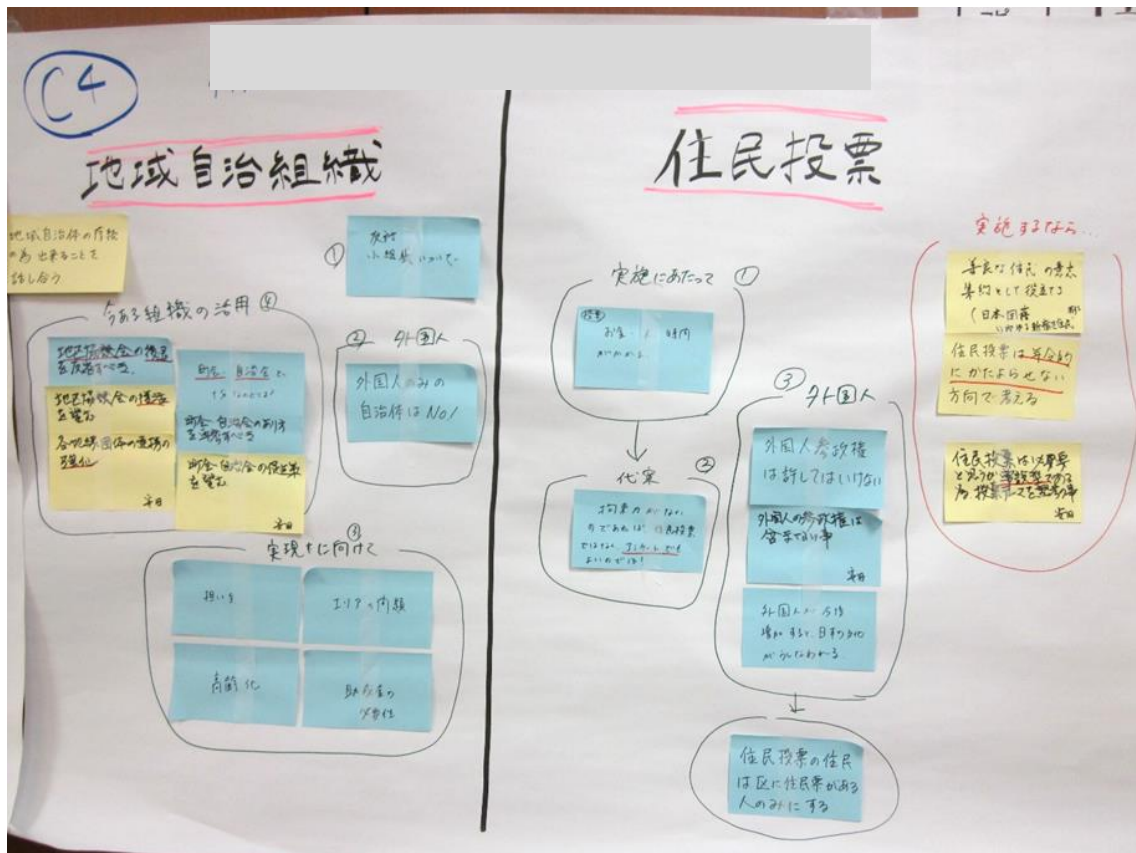 C4
地域自治組織
地域自治体の存続
の為出来ることを
話し合う
①
反対
小組織
今ある組織の活用④
地区協議会の
を反省すべき
地区協議会の復活
を望む
各地域団体の連携の
強化
町会・自治会
町会・自治会のあり方
町会・自治会の促進策
を望む
安田
② 外国人
外国人のみの
自治体はNO!
実現化に向けて③
担い手
エリアの問題
高齢化
助成金の
必要性
住民投票
実施にあたって①
お金・人・時間
がかかる
↓
代案②
拘束力がない
のであれば住民投票
ではなくアンケートでも
よいのでは!
③ 外国人
外国人参政権
は許してはいけない
外国人の参政権は
含まない事
安田
外国人が
増加すると、日本の文化
がうしなわれる
↓
住民投票の住民
は区に住民票がある
人のみにする
実施するなら…
善良な住民の意志
集約として役立てる
(日本国籍
住民投票は年令的
にかたよらせない
方向で考える
住民投票は必要
と思うが
安田